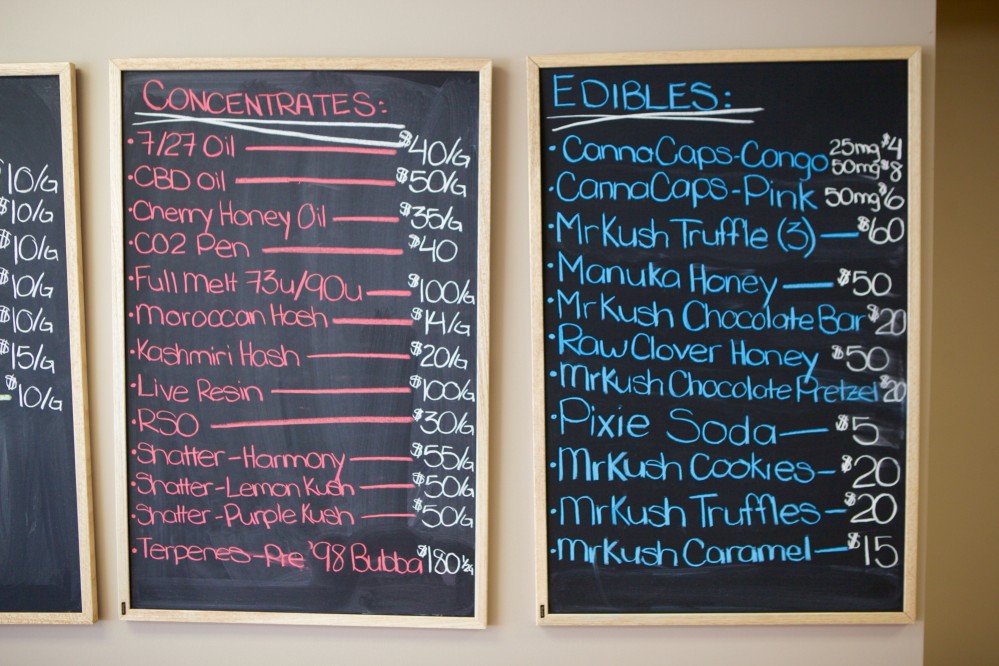 $10/G
$10/G
$10/G
$10/G
$10/G
$15/G
$10/G
CONCENTRATES:
•7/27 Oil $40/G
•CBD Oil $50/G
•Cherry Honey Oil $35/G
•CO2 Pen $40
•Full Melt 73u/90u $100/G
•Moroccan Hash $14/G
•Kashmiri Hash $20/G
•Live Resin $100/G
•RSO $30/G
•Shatter-Harmony $55/G
•Shatter-Lemon Kush $50/G
•Shatter-Purple Kush $50/G
•Terpenes-Pre '98 Bubba $180 ½G
EDIBLES:
•CannaCaps-Congo 25mg $4
50mg $8
•CannaCaps-Pink 50mg $6
•MrKush Truffle (3) $60
•Manuka Honey $50
•MrKush Chocolate Bar $20
•Raw Clover Honey $50
•MrKush Chocolate Pretzel $20
•Pixie Soda $5
•MrKush Cookies $20
•MrKush Truffles $20
•MrKush Caramel $15